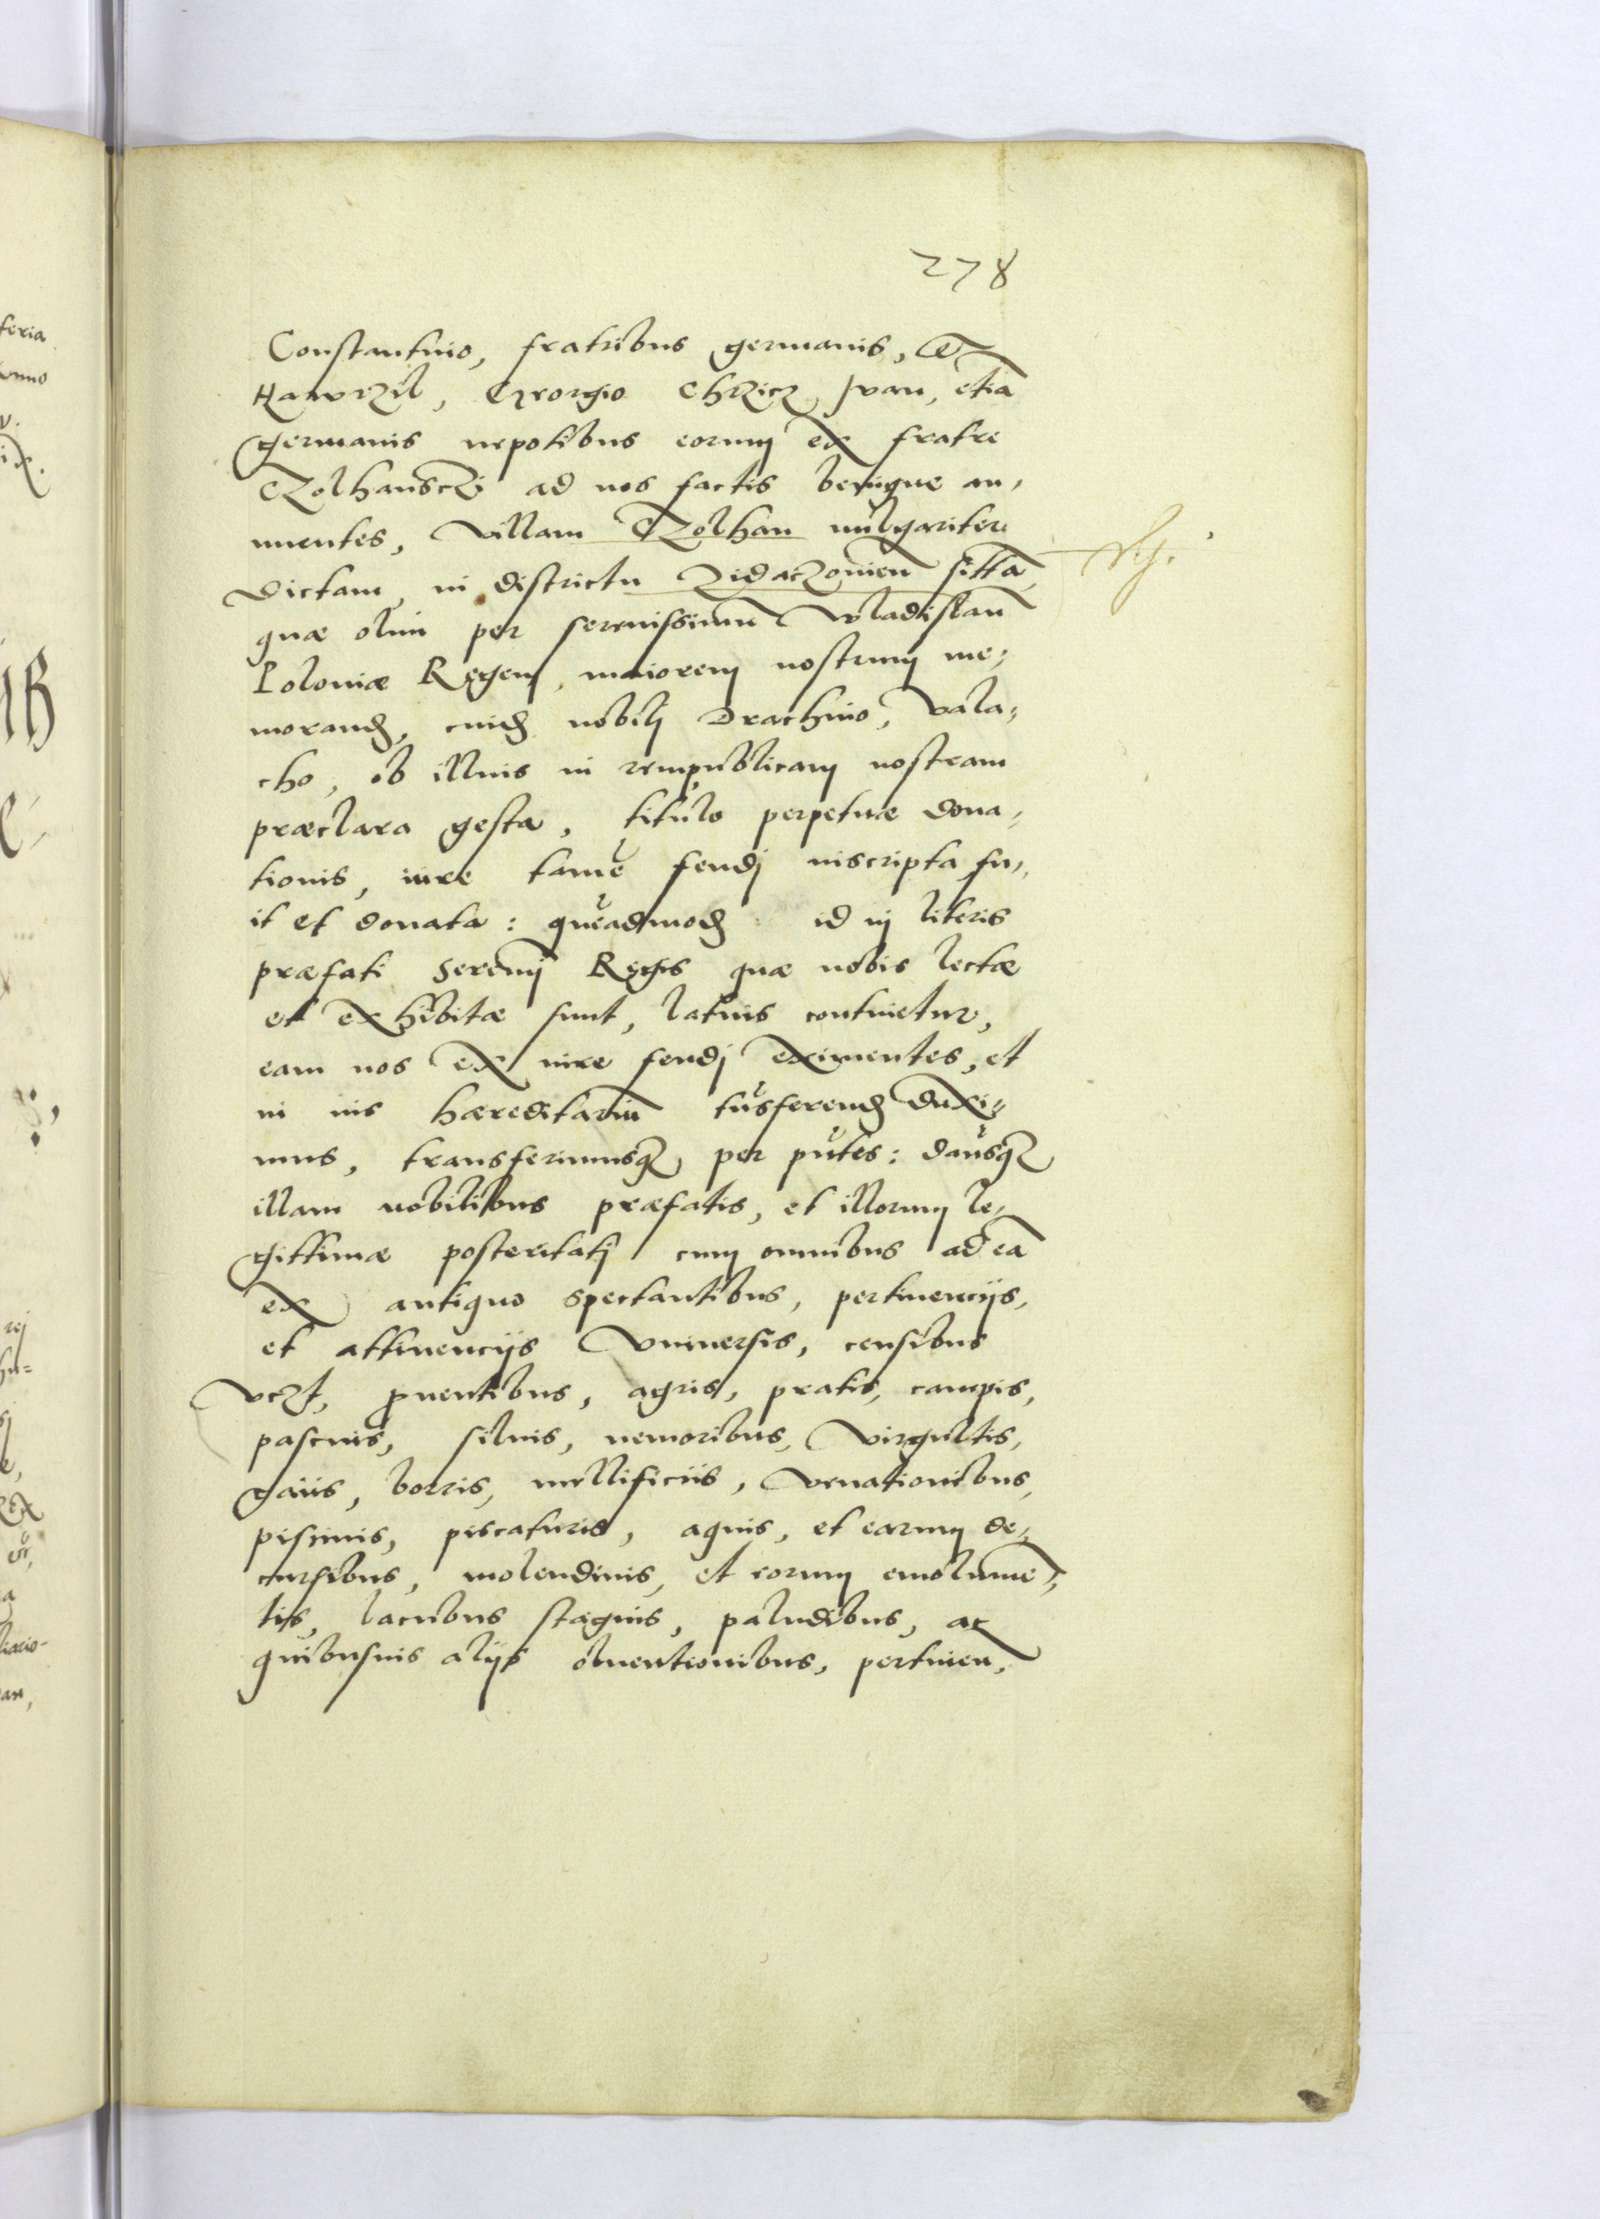 278
Constantino, fratribus germanis, Et
Hawrzil, Georgio Chrzicz Jvan, etiã
germanis nepotibus eorum ex fratre
Czolhansczi ad nos factis benigne an,
nuentes, villam Czolhan uulgariter
dictam, in districtu Zidaczouien̄ sittã,
quæ olim per serenissimũ Wladislaũ
Poloniæ Regem, maiorem nostrum me,
morand, cuid nobili Drachino, Vala,
cho, ob illius in rempublicam nostram
præclara gesta, titulo perpetuæ dona,
tionis, iure tamẽ feudj inscripta fu,
it et donata: quẽadmod id in literis
præfati Serenmi Regis quæ nobis lectæ
et exhibitæ sunt, latius continetur,
eam nos ex iure feudj eximentes, et
in ius hæreditariũ trãsferend duxi,
mus, transferimusq, per pñtes: dañsq
illam nobilibus præfatis, et illorum le,
gittimæ posteritatj cum omnibus ad eã
ex antiquo spectantibus, pertinencijs,
et attinencijs Vniuersis, censibus
vczt, puentibus, agris, pratis, campis,
pascuis, siluis, nemoribus, Virgultis,
gaiis, borris, mellificiis, Venationibus,
piscinis, piscaturis, aquis, et earum de,
cursibus, molendinis, et eorum emolumẽ,
tis, lacubus stagnis, paludibus, ac
quibusuis alijs obuentionibus, pertinen,